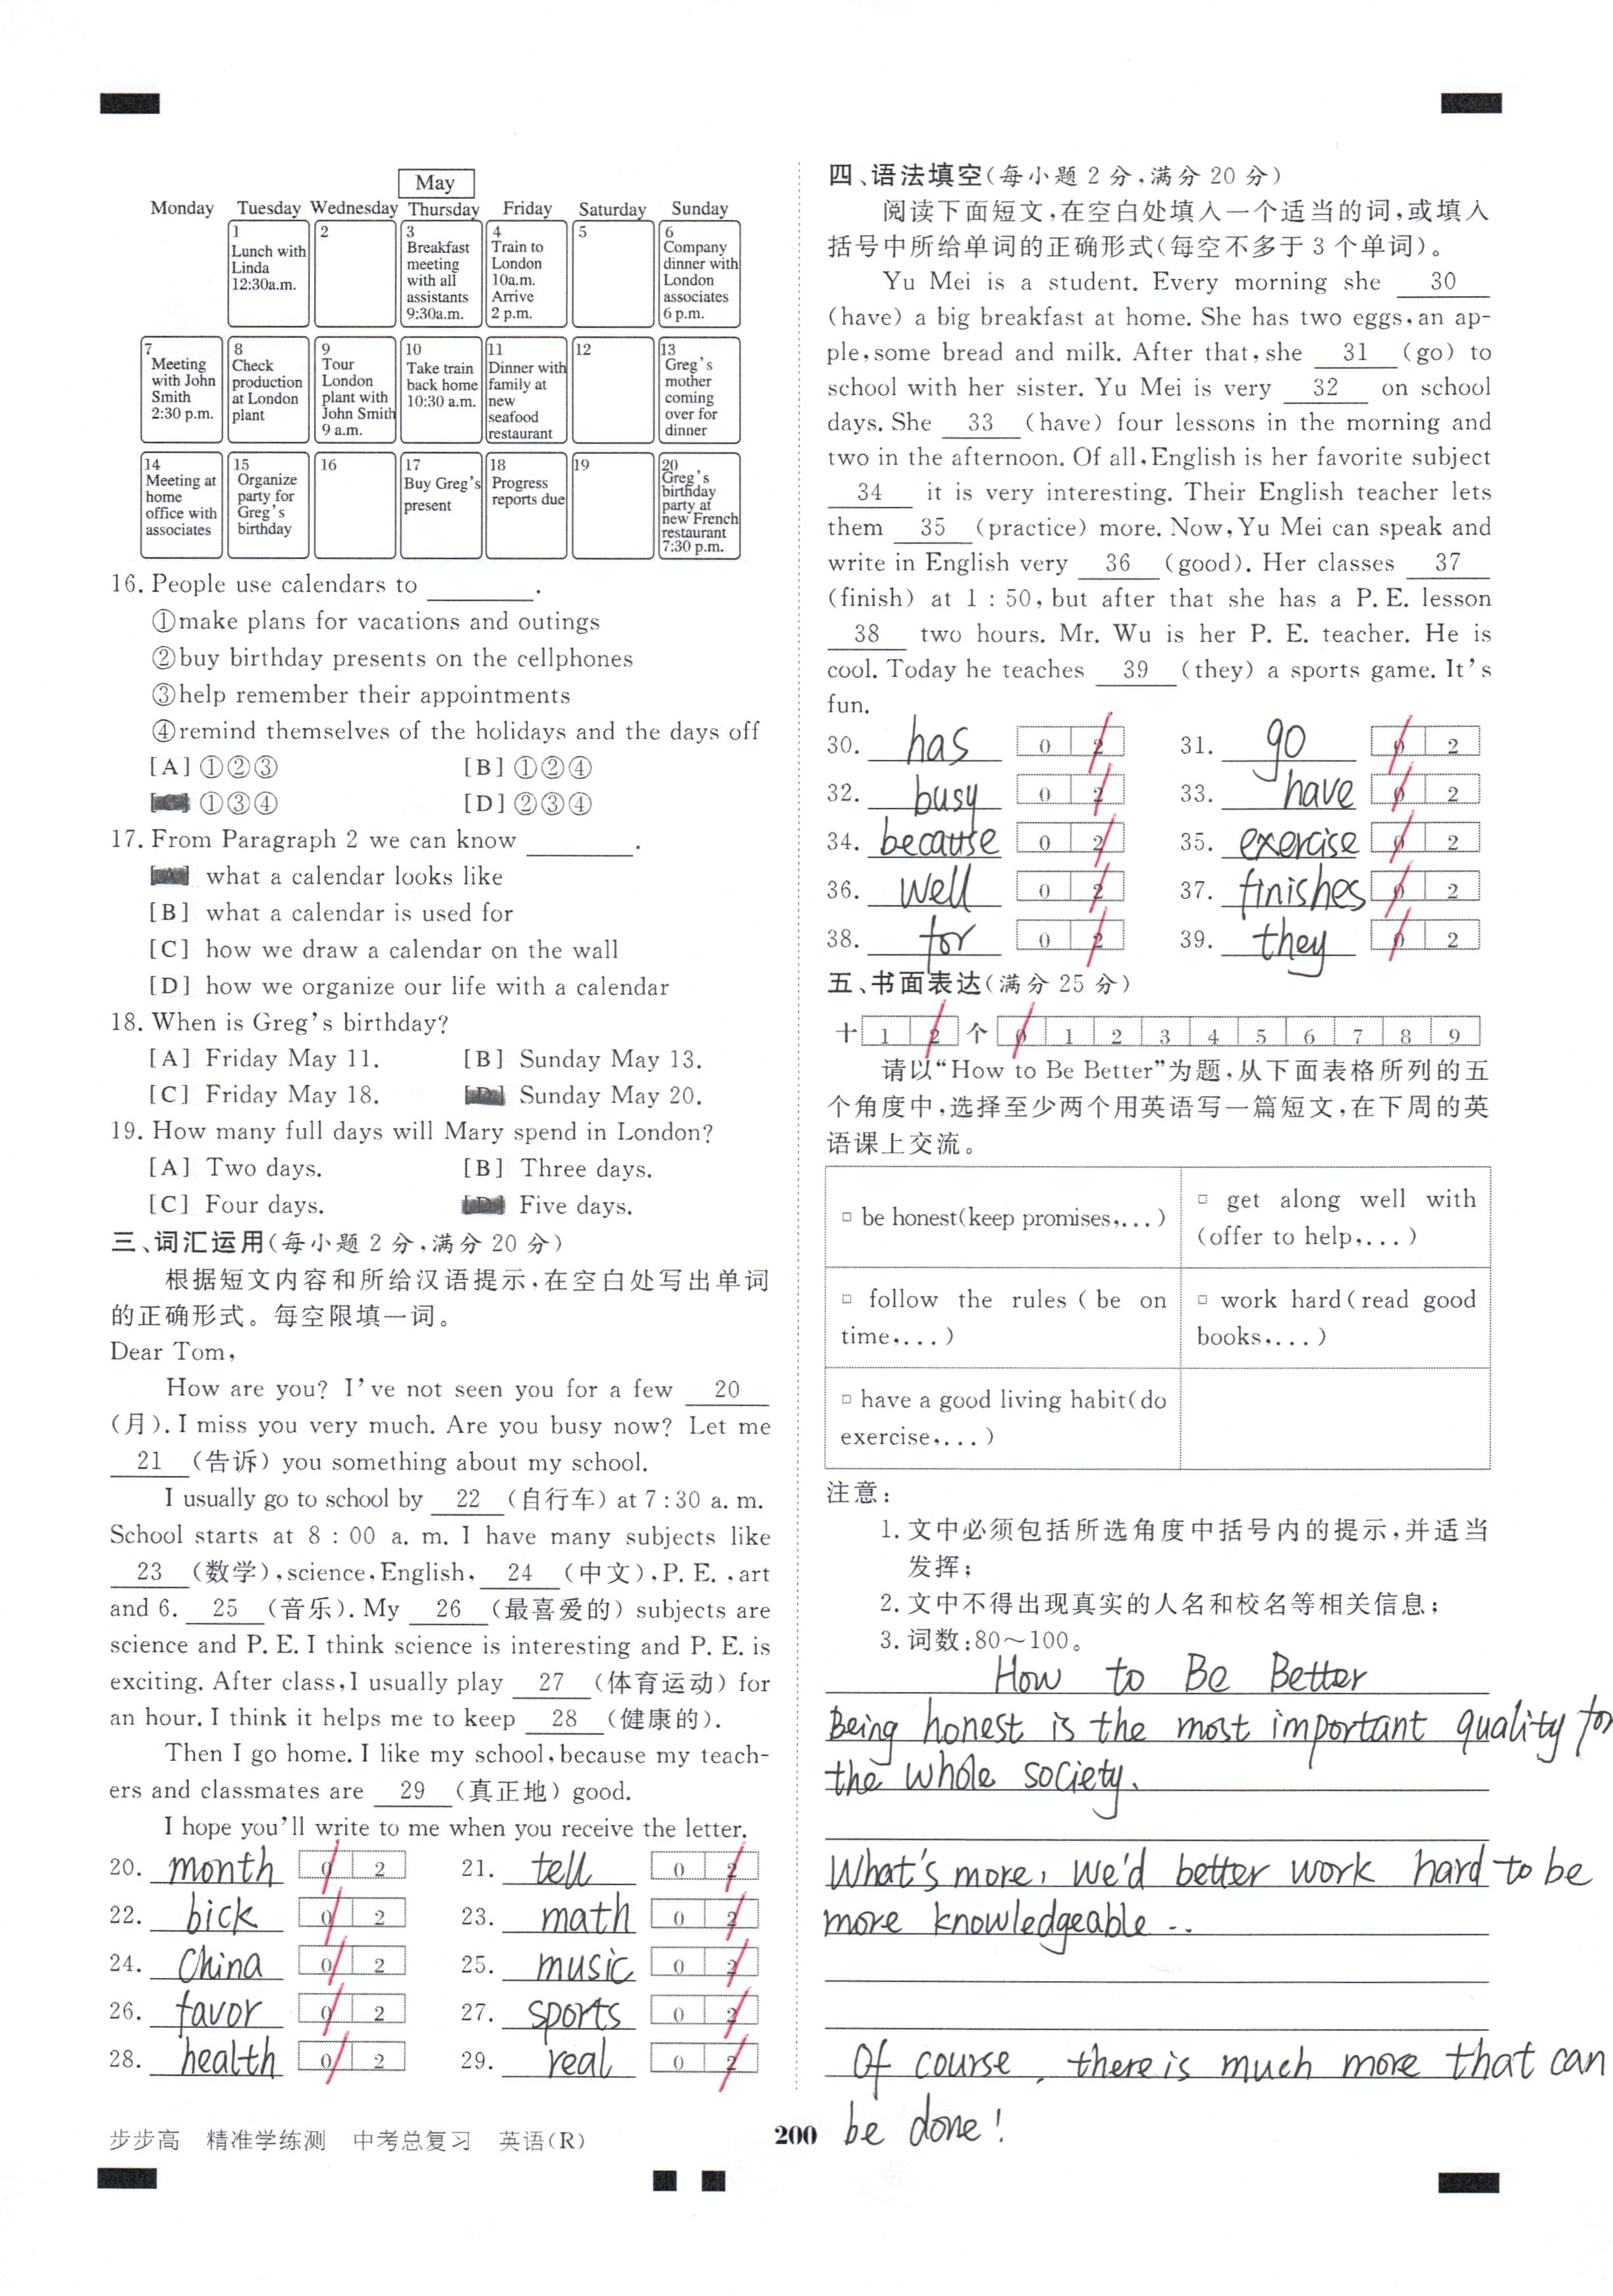 May
Monday Tuesday Wednesday Thursday Friday Saturday Sunday
1 Lunch with Linda 12:30a.m.
2
3 Breakfast meeting with all assistants 9:30a.m.
4 Train to London 10a.m. Arrive 2 p.m.
5
6 Company dinner with London associates 6 p.m.
7 Meeting with John Smith 2:30 p.m.
8 Check production at London plant
9 Tour London plant with John Smith 9 a.m.
10 Take train back home 10:30 a.m.
11 Dinner with family at new seafood restaurant
12
13 Greg's mother coming over for dinner
14 Meeting at home office with associates
15 Organize party for Greg's birthday
16
17 Buy Greg's present
18 Progress reports due
19
20 Greg's birthday party at new French restaurant 7:30 p.m.
16. People use calendars to ________.
①make plans for vacations and outings
②buy birthday presents on the cellphones
③help remember their appointments
④remind themselves of the holidays and the days off
[A] ①②③ [B] ①②④
①③④ [D] ②③④
17. From Paragraph 2 we can know ________.
what a calendar looks like
[B] what a calendar is used for
[C] how we draw a calendar on the wall
[D] how we organize our life with a calendar
18. When is Greg's birthday?
[A] Friday May 11. [B] Sunday May 13.
[C] Friday May 18. [D] Sunday May 20.
19. How many full days will Mary spend in London?
[A] Two days. [B] Three days.
[C] Four days. [D] Five days.
三、词汇运用(每小题 2 分,满分 20 分)
根据短文内容和所给汉语提示,在空白处写出单词
的正确形式。每空限填一词。
Dear Tom,
How are you? I've not seen you for a few 20
(月). I miss you very much. Are you busy now? Let me
21 (告诉) you something about my school.
I usually go to school by 22 (自行车) at 7:30 a. m.
School starts at 8 : 00 a. m. I have many subjects like
23 (数学),science,English, 24 (中文),P. E. ,art
and 6. 25 (音乐). My 26 (最喜爱的) subjects are
science and P. E. I think science is interesting and P. E. is
exciting. After class,I usually play 27 (体育运动) for
an hour. I think it helps me to keep 28 (健康的).
Then I go home. I like my school,because my teach-
ers and classmates are 29 (真正地) good.
I hope you'll write to me when you receive the letter.
20. month 0 2 21. tell 0 2
22. bick 0 2 23. math 0 2
24. China 0 2 25. music 0 2
26. favor 0 2 27. sports 0 2
28. health 0 2 29. real 0 2
四、语法填空(每小题 2 分,满分 20 分)
阅读下面短文,在空白处填入一个适当的词,或填入
括号中所给单词的正确形式(每空不多于 3 个单词)。
Yu Mei is a student. Every morning she 30
(have) a big breakfast at home. She has two eggs,an ap-
ple,some bread and milk. After that,she 31 (go) to
school with her sister. Yu Mei is very 32 on school
days. She 33 (have) four lessons in the morning and
two in the afternoon. Of all,English is her favorite subject
34 it is very interesting. Their English teacher lets
them 35 (practice) more. Now,Yu Mei can speak and
write in English very 36 (good). Her classes 37
(finish) at 1 : 50,but after that she has a P. E. lesson
38 two hours. Mr. Wu is her P. E. teacher. He is
cool. Today he teaches 39 (they) a sports game. It's
fun.
30. has 0 2 31. go 0 2
32. busy 0 2 33. have 0 2
34. because 0 2 35. exercise 0 2
36. well 0 2 37. finishes 0 2
38. for 0 2 39. they 0 2
五、书面表达(满分 25 分)
十 1 2 个 0 1 2 3 4 5 6 7 8 9
请以“How to Be Better”为题,从下面表格所列的五
个角度中,选择至少两个用英语写一篇短文,在下周的英
语课上交流。
□ be honest(keep promises,...)
□ get along well with
(offer to help,...)
□ follow the rules ( be on
time,...)
□ work hard(read good
books,...)
□ have a good living habit(do
exercise,...)
注意:
1. 文中必须包括所选角度中括号内的提示,并适当
发挥;
2. 文中不得出现真实的人名和校名等相关信息;
3. 词数:80～100。
How to Be Better
Being honest is the most important quality for
the whole society.
What's more, we'd better work hard to be
more knowledgeable ..
Of course, there is much more that can
be done!
步步高 精准学练测 中考总复习 英语(R)
200